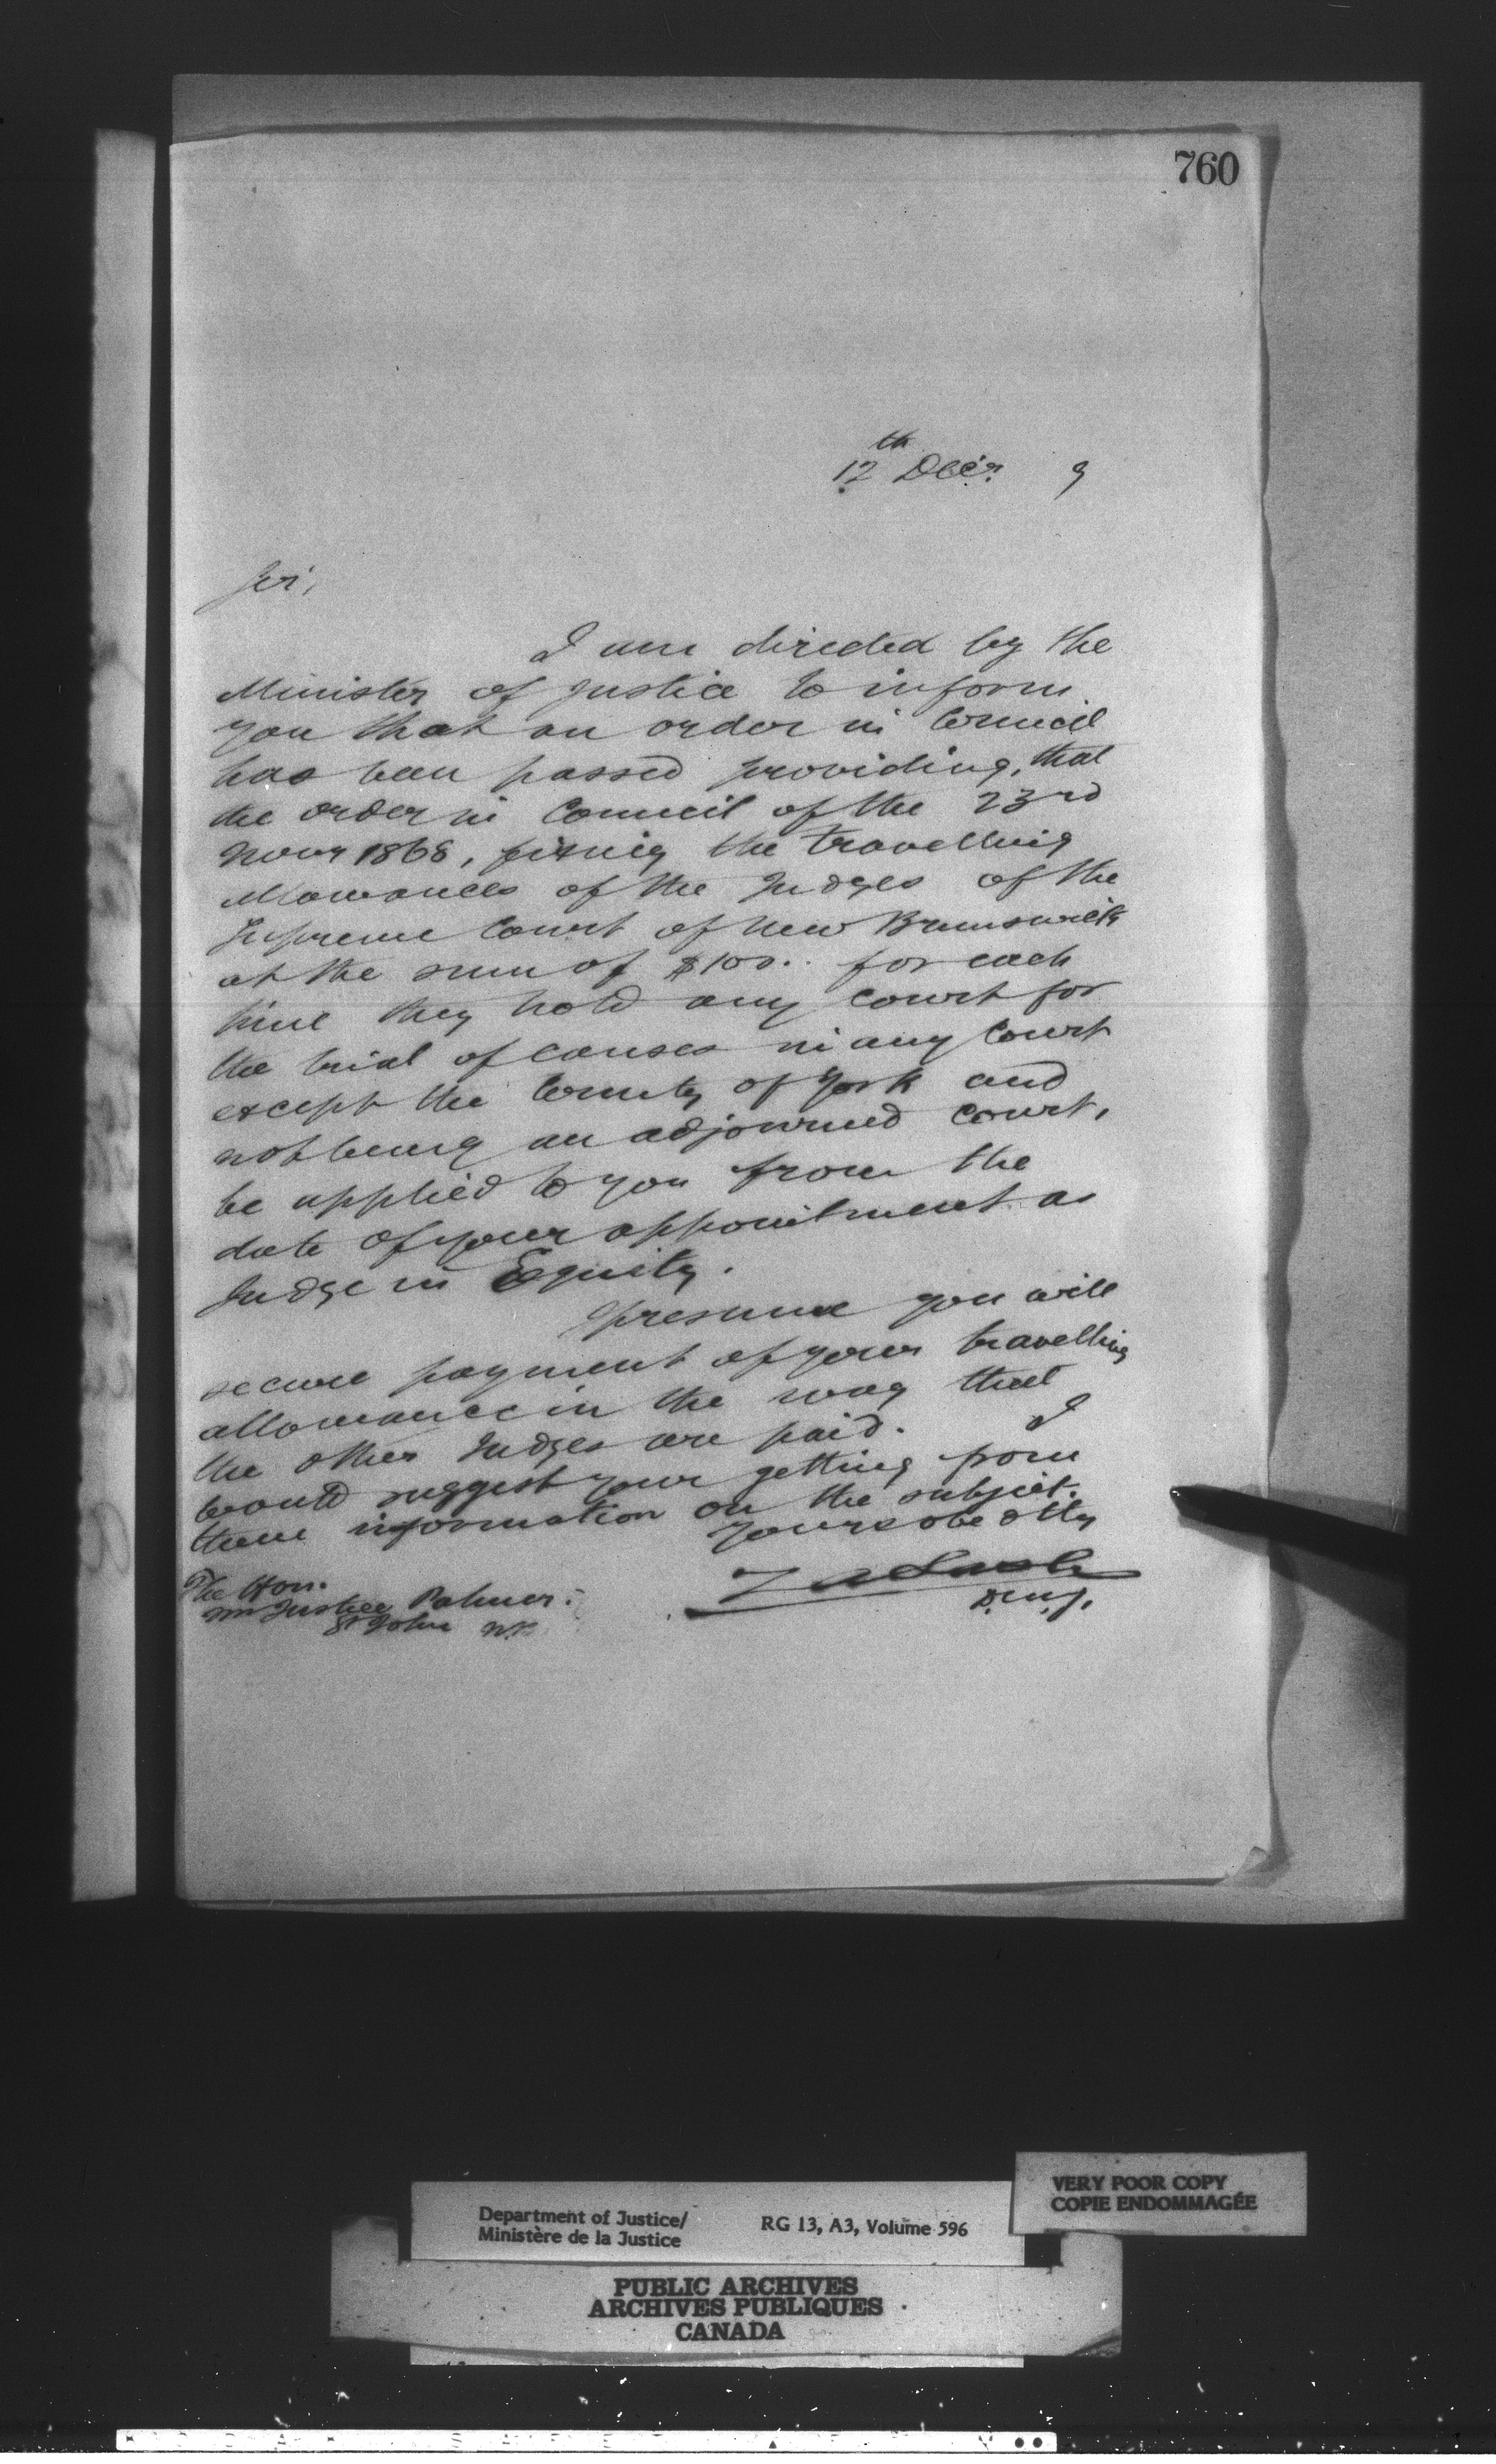 760
12th Decr. 9
Sir,
I am directed by the
Minister of Justice to inform
you that an order in Council
has been passed providing, that
the order in Council of the 23rd
Novr 1868, fixing the travelling
allowances of the Judges of the
Supreme Court of New Brunswick
at the sum of $100.. for each
time they hold any court for
the trial of causes in any Court
except the County of York and
not being an adjourned court,
be applied to you from the
date of your appointment as
Judge in Equity.
I presume you will
secure payment of your travelling
allowance in the way that
the other Judges are paid. I
would suggest your getting from
them information on the subject.
Yours obedtly
Z A Lash
D.M.J.
The Hon.
Mr Justice Palmer.
St John N.B.
Department of Justice/
Ministère de la Justice
RG 13, A3, Volume 596
VERY POOR COPY
COPIE ENDOMMAGÉE
PUBLIC ARCHIVES
ARCHIVES PUBLIQUES
CANADA